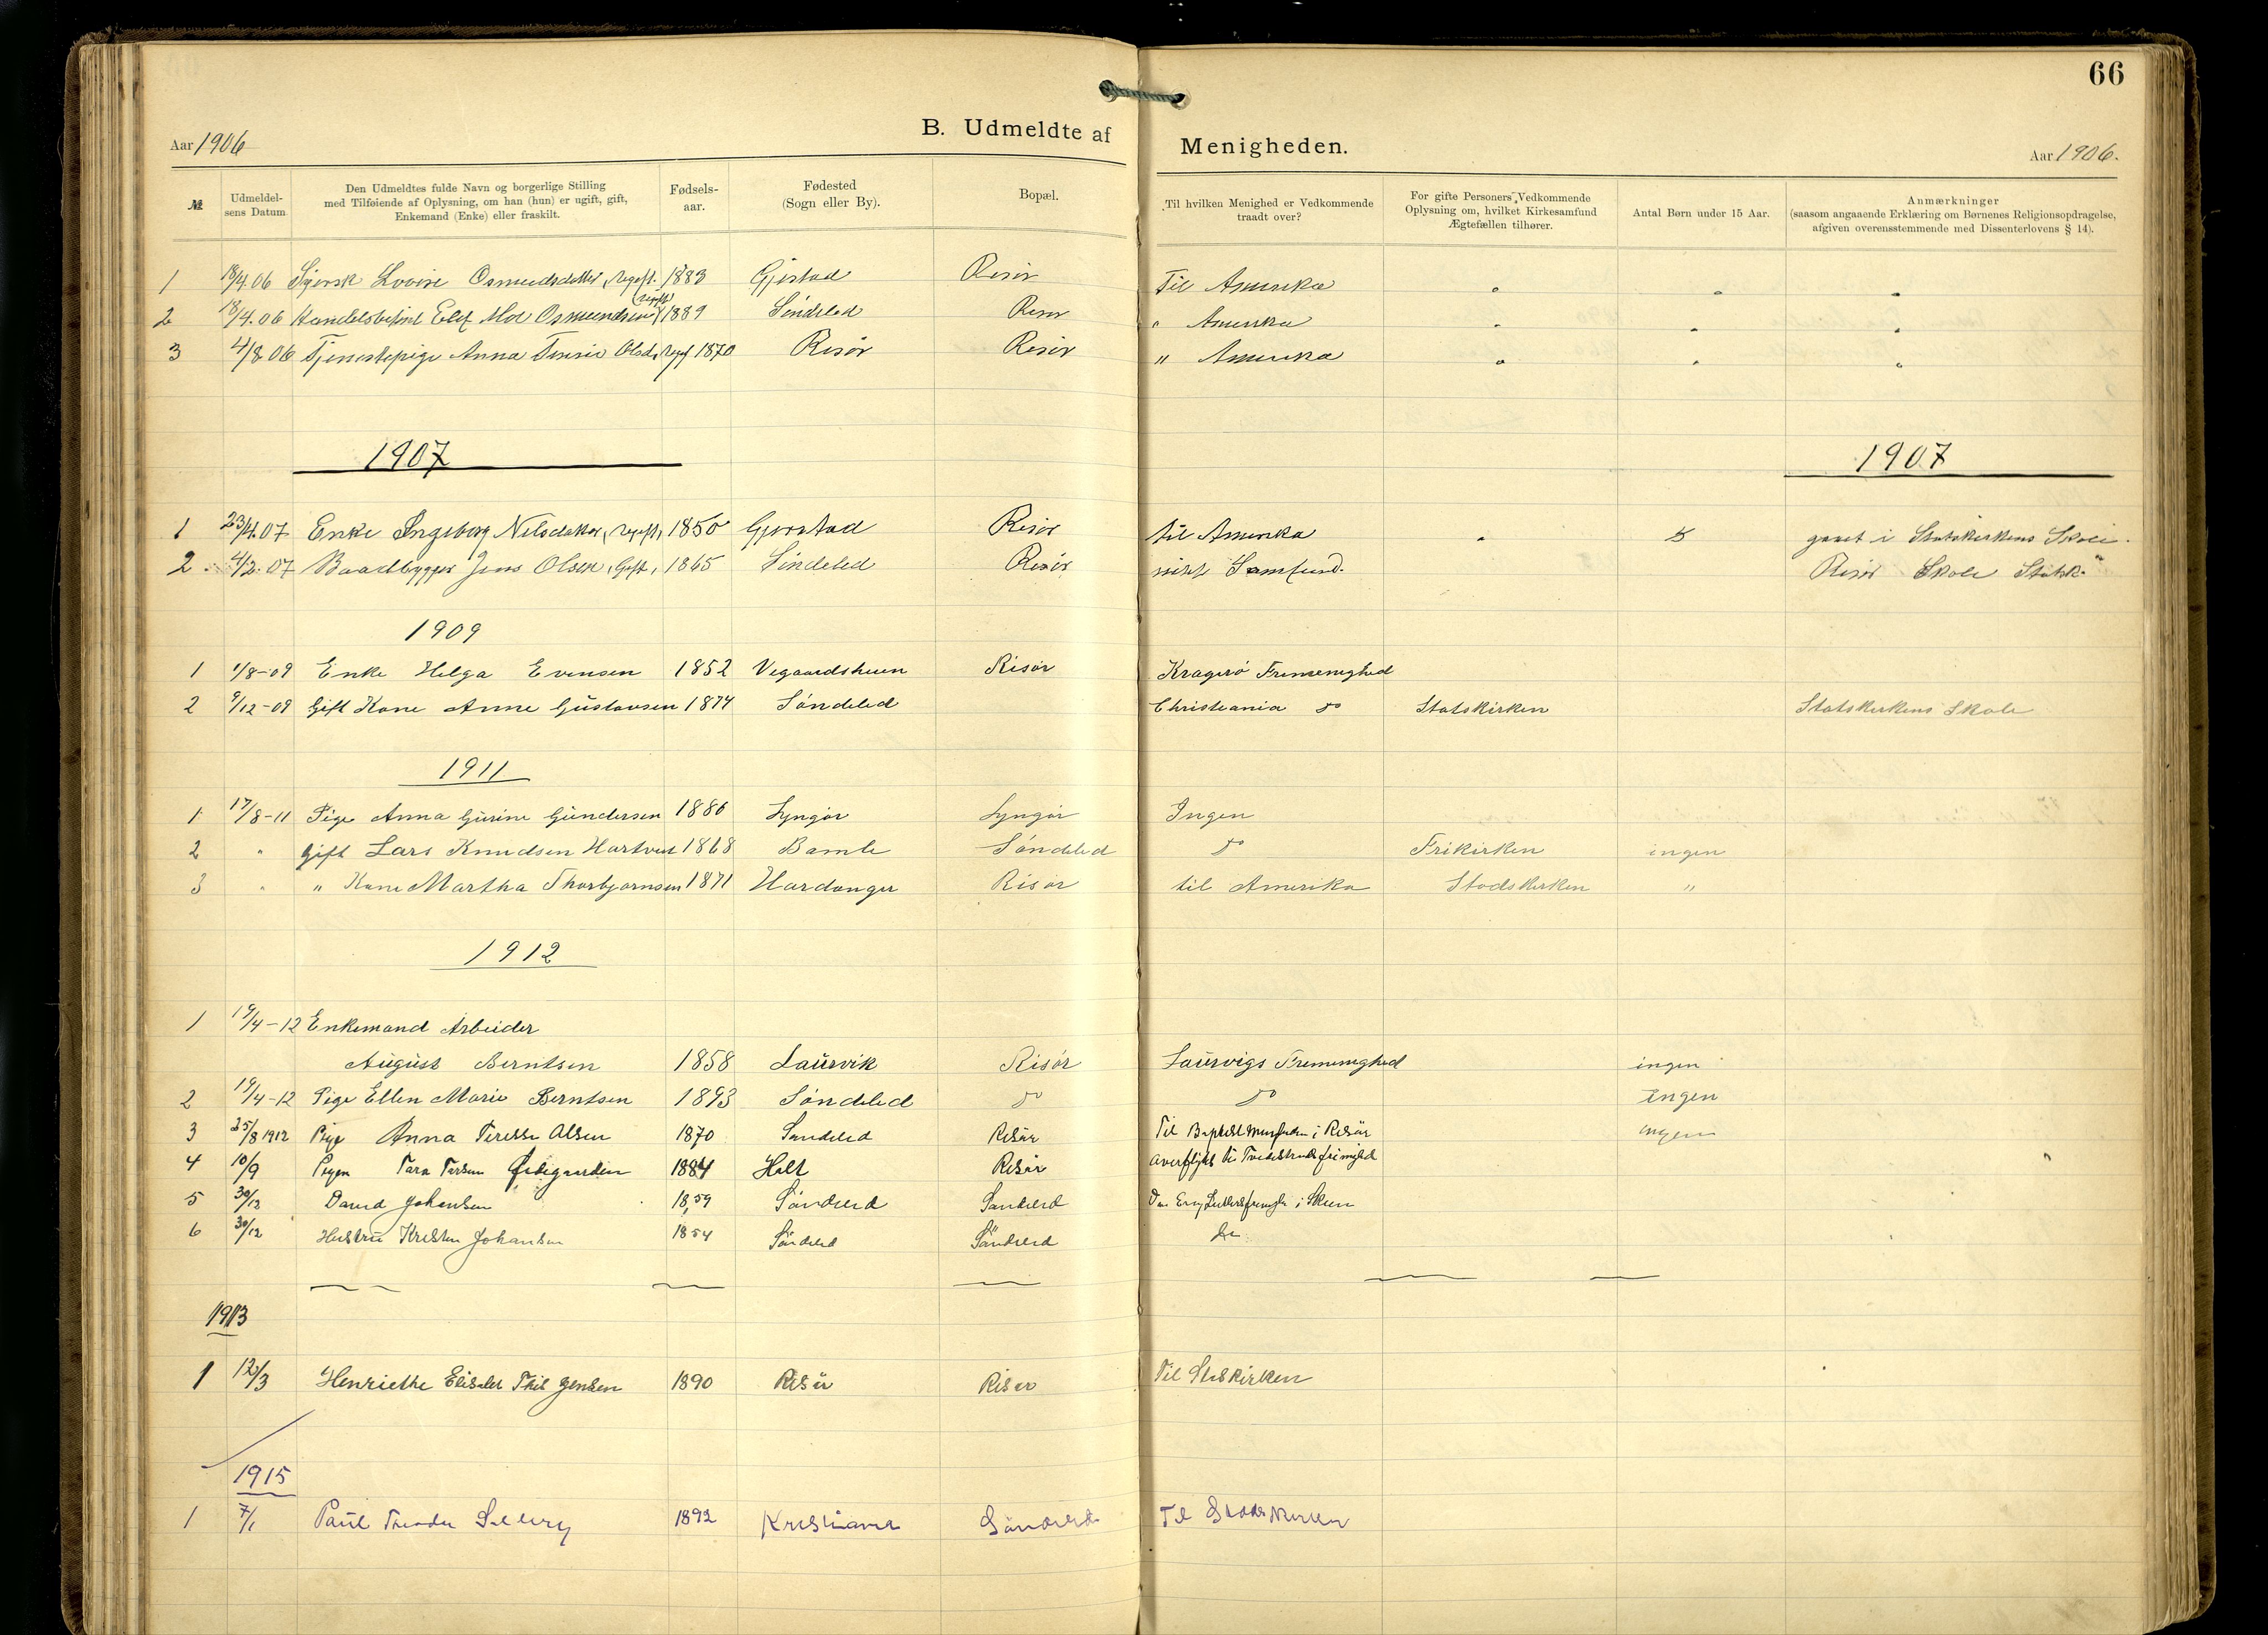 66
B. Udmeldte af Menigheden.
Aar 1906
Aar 1906.
№
Udmeldelsens Datum
Den Udmeldtes fulde Navn og borgerlige Stilling
med Tilføiende af Oplysning, om han (hun) er ugift, gift,
Enkemand (Enke) eller fraskilt.
Fødselsaar.
Fødested
(Sogn eller By).
Bopæl.
Til hvilken Menighed er Vedkommende
traadt over?
For gifte Personers Vedkommende
Oplysning om, hvilket Kirkesamfund
Ægtefællen tilhører.
Antal Børn under 15 Aar.
Anmærkninger
(saasom angaaende Erklæring om Børnenes Religionsopdragelse,
afgiven overensstemmende med Dissenterlovens § 14).
1 18/4.06 Lovise Osmundsdatter, 1883 Gjerstad Risör Til Amerika
2 18/4.06 Osmundsen 1889 Söndeled Risör " Amerika
3 4/8 06 Tjenestepige Anna Olsd, 1870 Risör Risör " Amerika
1907
1907
1 23/4.07 Enke Ingeborg Nilsdatter, 1850 Gjerstad Risör til Amerika 5 i Statskirkens Skole.
2 4/2.07 Baadbygger Jens Olsen, Gift, 1865 Söndeled Risör Samfund. Risör Skole Statsk.
1909
1 1/8-09 Enke Helga Evensen 1852 Vegaardsheien Risör Kragerö Frimenighed
2 9/12-09 Gift Kone Anne Gustavsen 1874 Söndeled Christiania do Statskirken Statskirkens Skole
1911
1 17/8-11 Pige Anna Gurine Gundersen 1886 Lyngör Lyngör Ingen
2 " Gift Lars Knudsen 1868 Bamle Söndeled do Frikirken ingen
3 " " Kone Martha Thorbjörnsen 1871 Hardanger Risör til Amerika Stadskirken "
1912
1 19/4-12 Enkemand Arbeider
August Berntsen 1858 Laurvik Risör Laurvigs Frimenighed ingen
2 19/4-12 Pige Ellen Marie Berntsen 1893 Söndeled do do Ingen
3 25/8 1912 Pige Anna Teresse Olsen 1870 Söndeled Risör Til i Risör ingen
4 10/9 Pigen Tara 1884 Holt Risör
5 30/12 David Johansen 1859 Söndeled Söndeled i Skien
6 30/12 Hustru Johansen 1854 Söndeled Söndeled do
1913
1 12/3 Henriethe Jensen 1890 Risör Risör Til Statskirken
1915
1 7/1 Paul 1892 Kristiania Söndeled Til Statskirken